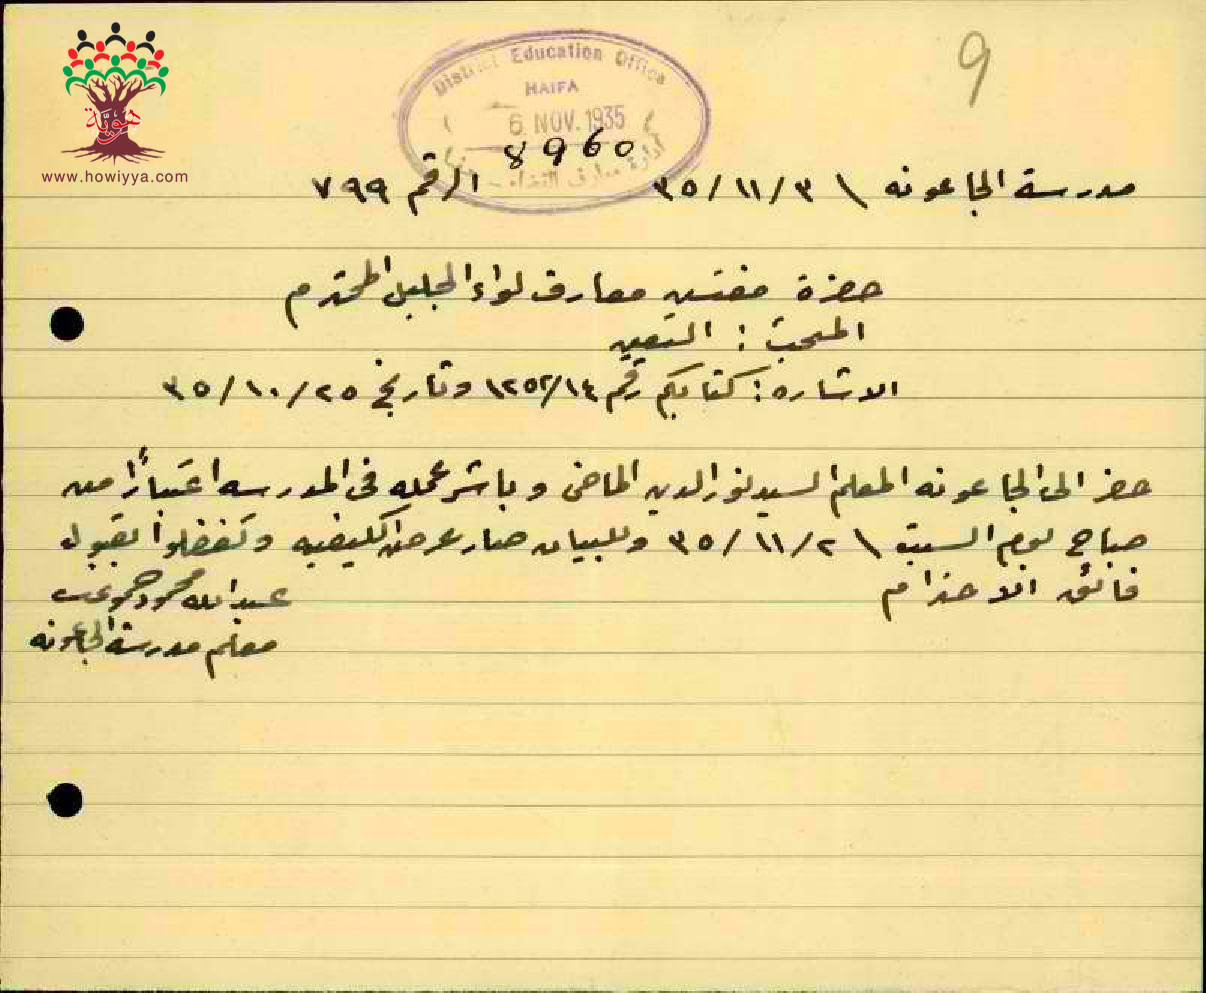 9
District Education Office
HAIFA
6 NOV. 1935
8960
إدارة معارف القضاء
هويّة
www.howiyya.com
مدرسة الجاعونه \ ٣/١١/٣٥ الرقم ٧٩٩
حضرة مفتش معارف لواء الجليل المحترم
المبحث : التعيين
الاشاره : كتابكم رقم ١٢٥٢/١٤ وتاريخ ٢٥/١٠/٣٥
حضر الى الجاعونه المعلم السيد نور الدين الماضي وباشر عمله في المدرسه اعتباراً من
صباح يوم السبت \ ٢/١١/٣٥ وللبيان صار عرض الكيفيه وتفضلوا بقبول
فائق الاحترام
عبدالله محمود
معلم مدرسة الجاعونه